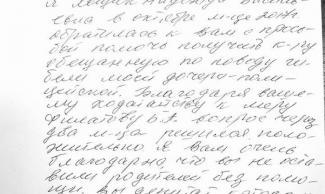 Я Лещик Надежда Василь-
евна в октябре м-це 2014
обратилась к Вам с прось
бой помочь получить к-ру
обещанную по поводу ги-
бели моей дочери-поли-
цейской. Благодаря Ваше-
му ходатайству к меру
Филатову Б.А. вопрос через
два м-ца решился поло-
жительно. Я Вам очень
благодарна, что вы не оста
вили родителей без помо-
щи. Вы